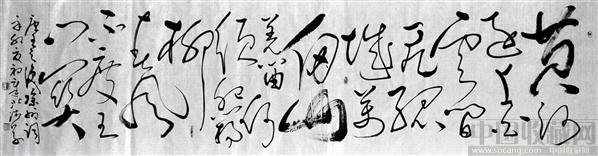 黄河
远上白
云间一
片孤
城万
仞山
羌笛何
须怨杨
柳
春风
不度玉
门关
唐王之涣凉州词
中国收藏网
www.socang.com